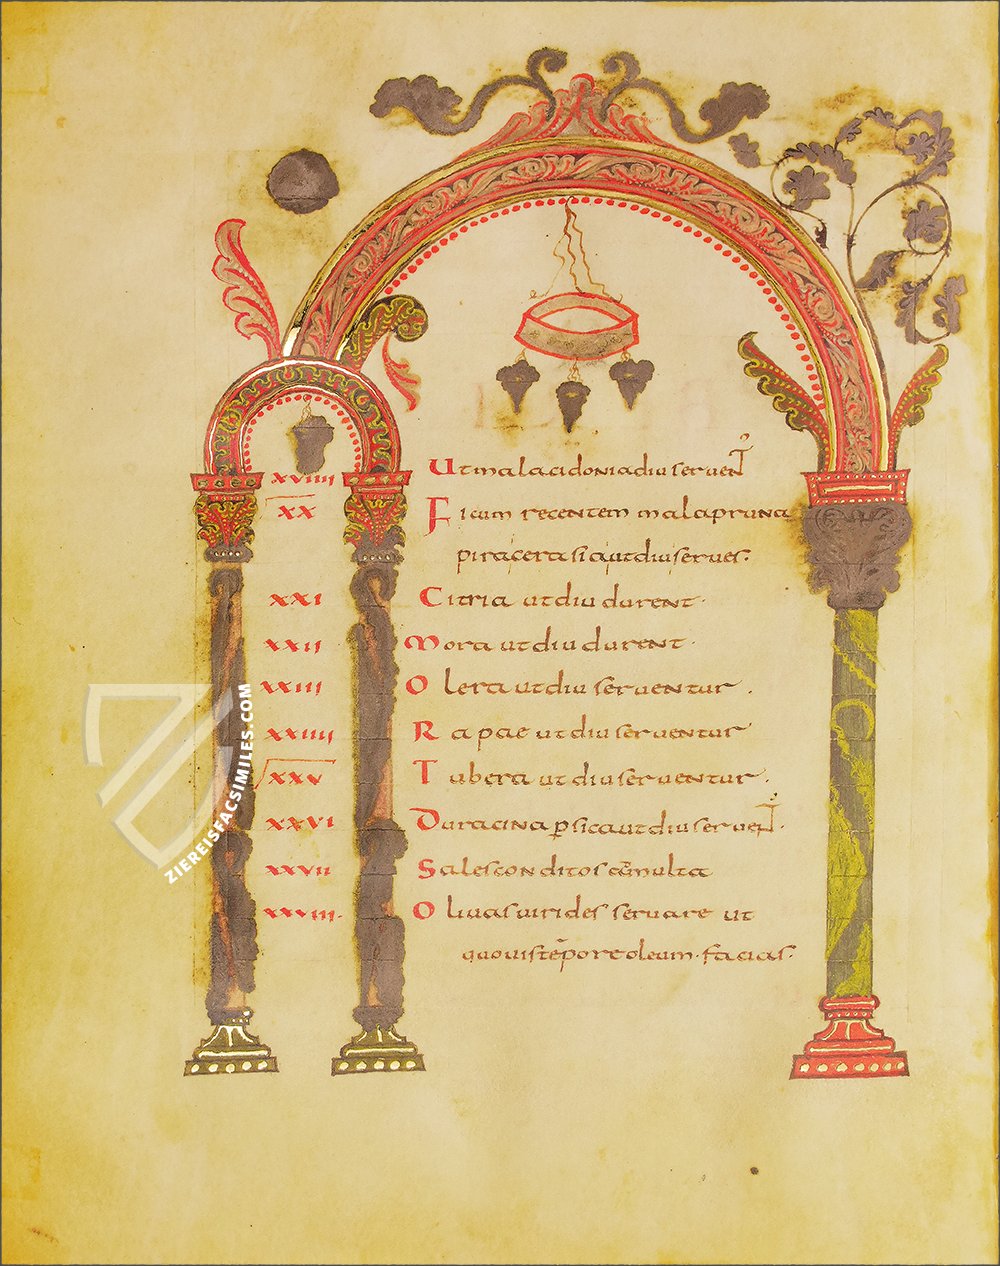 xviiii Ut mala cidonia diu servent
xx Ficum recentem mala pruna
pira cerasia ut diu serves.
xxi Citria ut diu durent.
xxii Mora ut diu durent.
xxiii Olera ut diu serventur.
xxiiii Rapae ut diu serventur
xxv Tubera ut diu serventur.
xxvi Duracina persica ut diu servent.
xxvii Sales conditos ad multa
xxviii. Olivas virides servare ut
quovis tēpore oleum facias.
ZIEREISFACSIMILES.COM